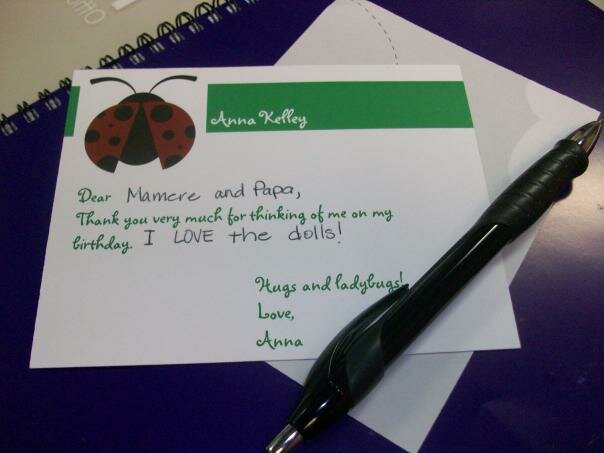 Anna Kelley
Dear Mamere and Papa,
Thank you very much for thinking of me on my
birthday. I LOVE the dolls!
Hugs and ladybugs!
Love,
Anna